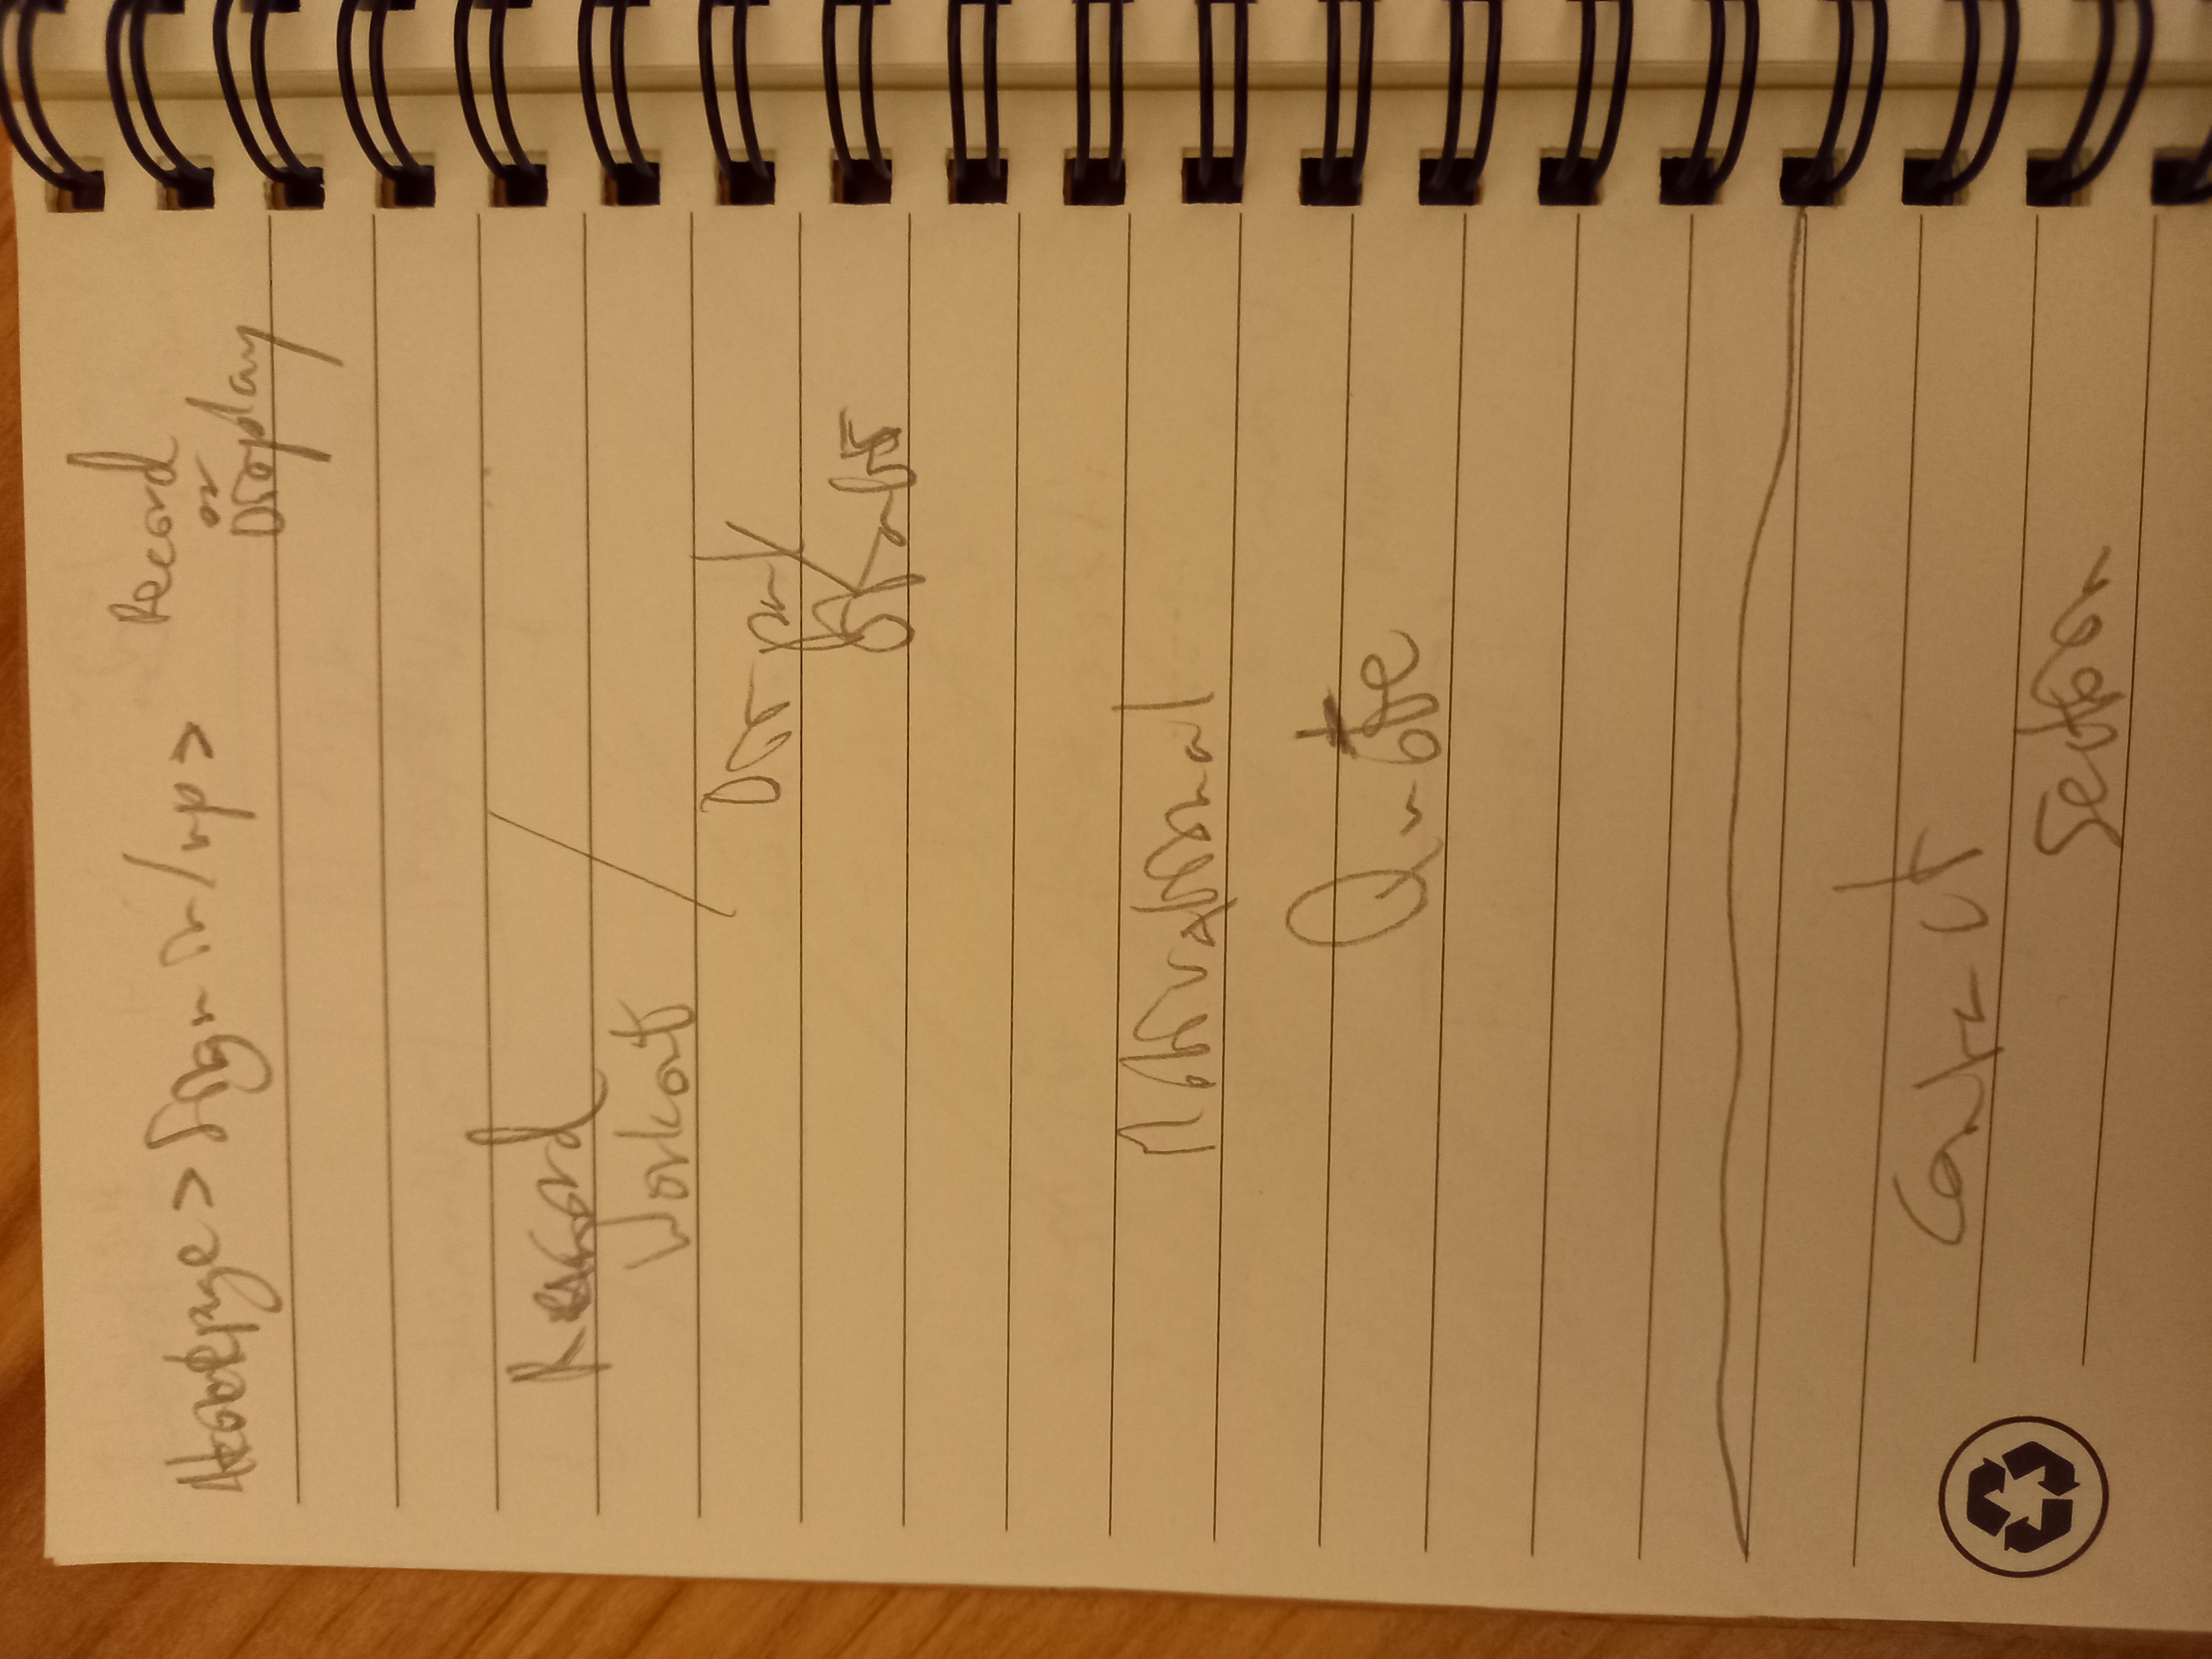 Homepage > Sign in/up > Record
or
Display
Record
Workout /
Display
Stats
Motivational
Quote
Contact
Section